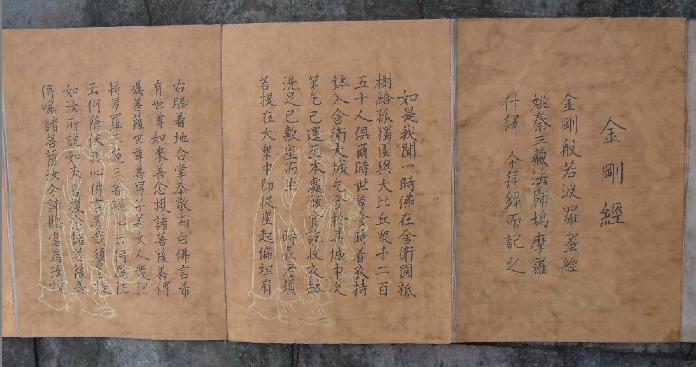 金剛經
金剛般若波羅蜜經
姚秦三藏法師鳩摩羅
什譯 今拜錄而記之
如是我聞一時佛在舍衛國祇
樹給孤獨園與大比丘眾千二百
五十人俱爾時世尊食時着衣持
鉢入舍衛大城乞食於其城中次
第乞已還至本處飯食訖收衣鉢
洗足已敷座而坐 時長老須
菩提在大眾中即從座起偏袒右
右膝着地合掌恭敬而白佛言希
有世尊如來善念護諸菩薩善付
囑菩薩世尊善男子善女人發阿
耨多羅三藐三菩提心云何應住
云何降伏其心佛言善哉須菩提
如汝所說如來善護念諸菩薩善
付囑諸菩薩汝今諦聽當為汝說